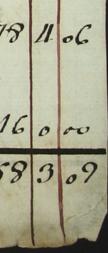 78 4 06
16 0 00
58 3 09